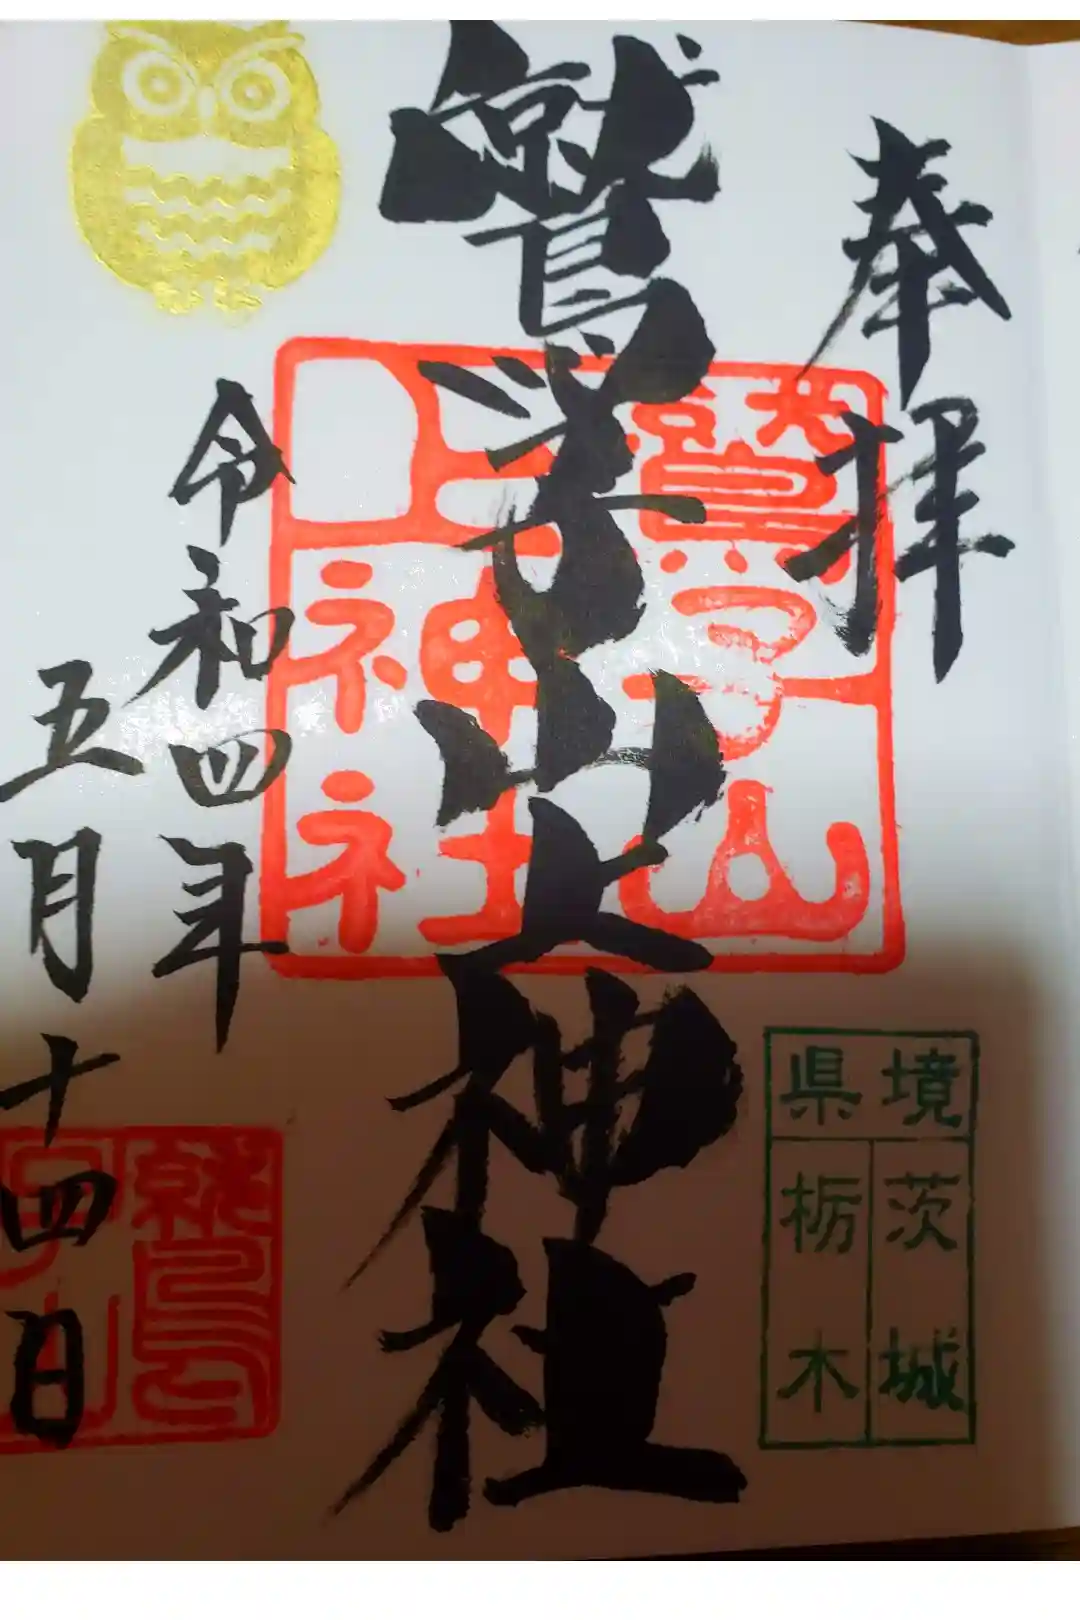 奉拝
鷲子山上神社
令和四年
五月十四日
鷲子山
上神社
県境
茨城
栃木
鷲
子山